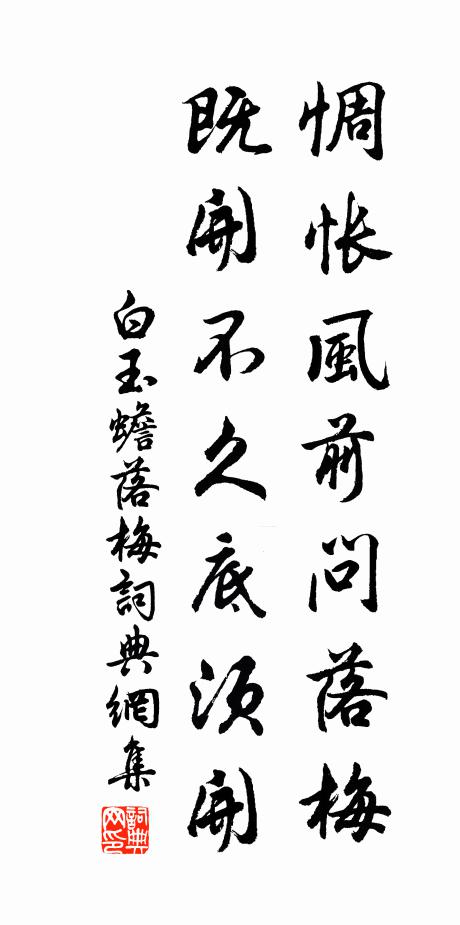 惆悵風前問落梅
既開不久底須開
白玉蟾落梅詞典網集
詞典网印